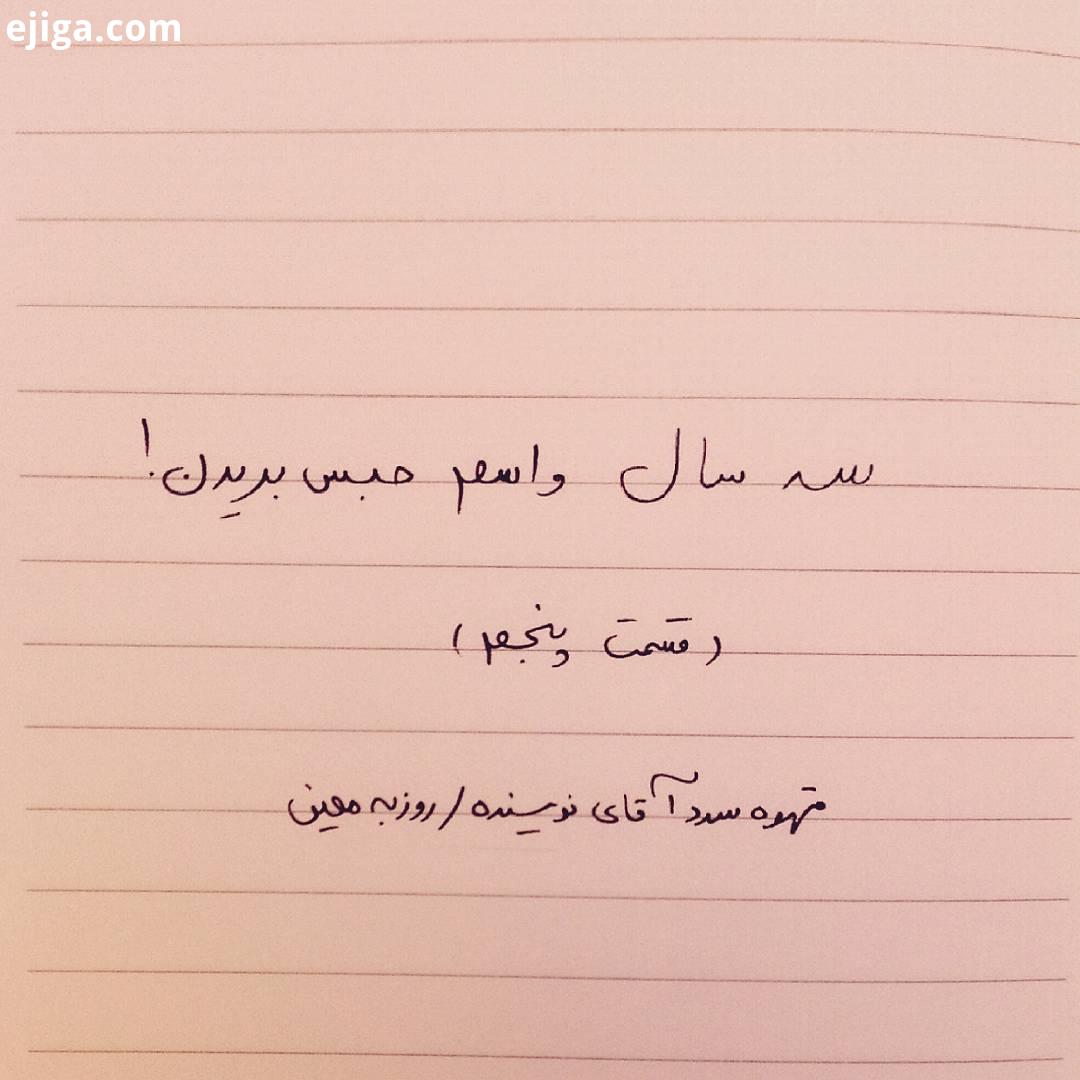 ejiga.com
سه سال واسم حبس بریدن!
(قسمت پنجم)
قهوه سرد آقای نویسنده / روزبه معین